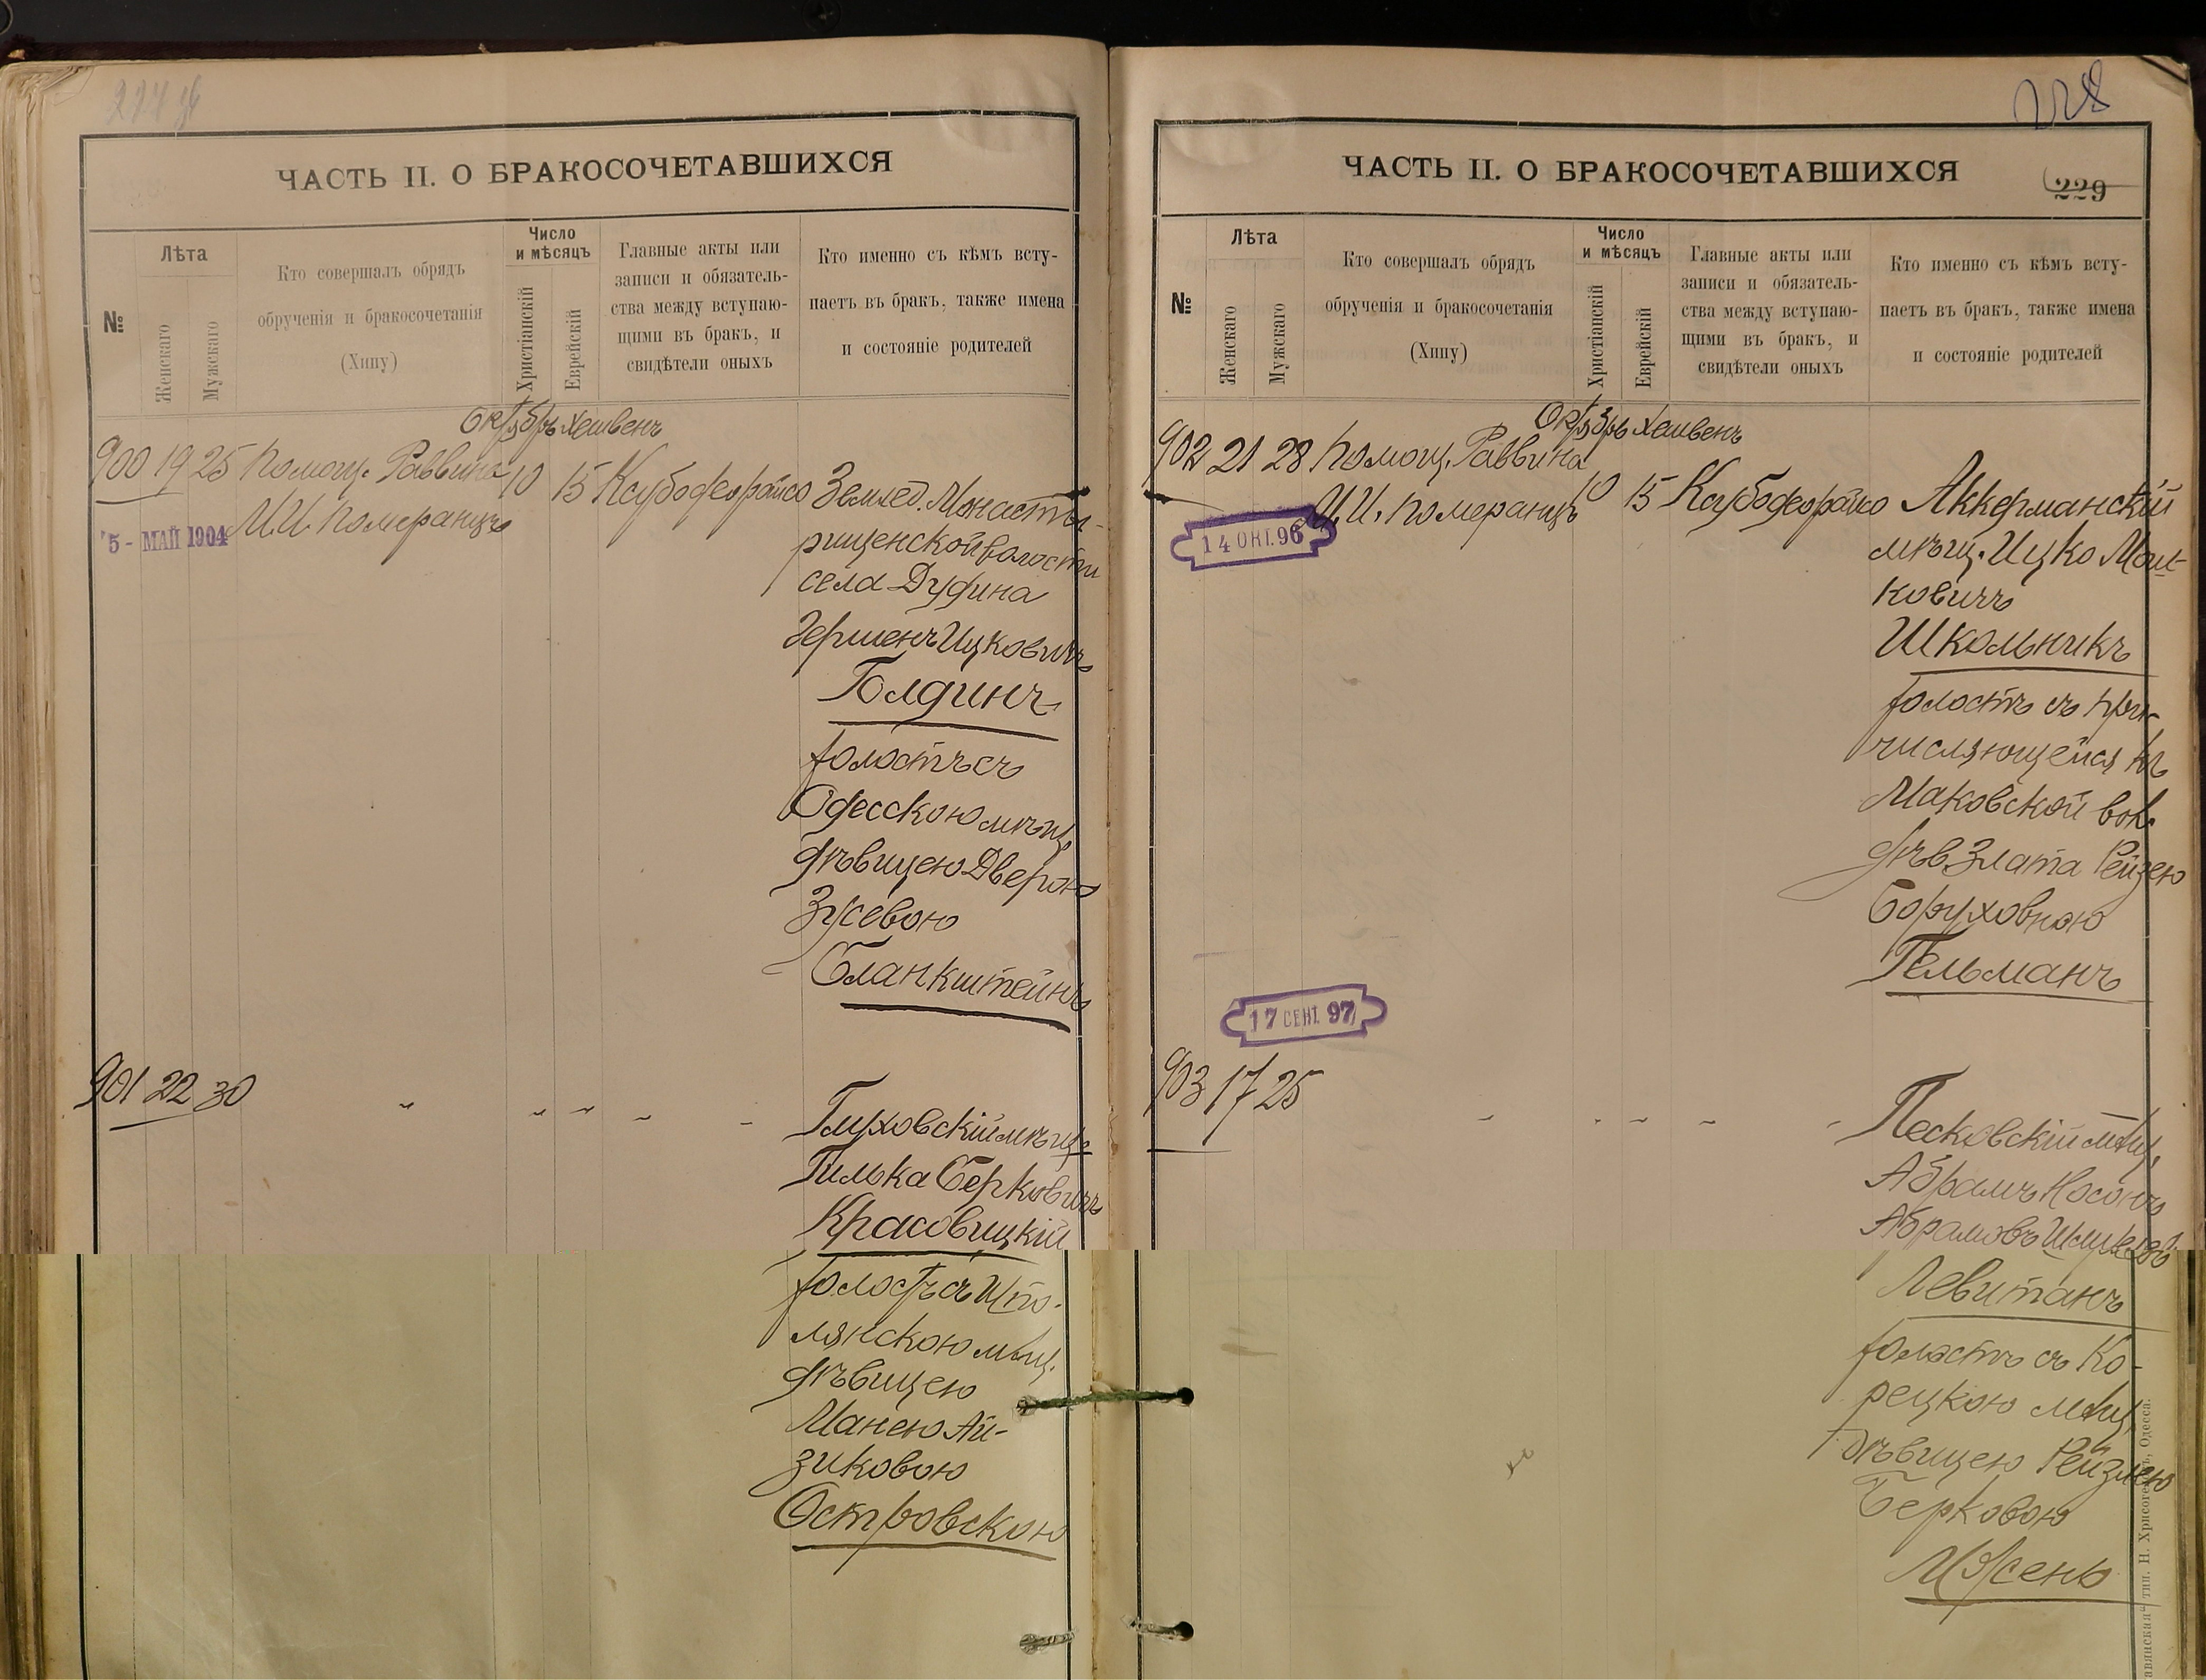 ЧАСТЬ II. О БРАКОСОЧЕТАВШИХСЯ
№
Лѣта
Женскаго
Мужскаго
Кто совершалъ обрядъ
обрученія и бракосочетанія
(Хипу)
Число
и мѣсяцъ
Христіанскій
Еврейскій
Главные акты или
записи и обязатель-
ства между вступаю-
щими въ бракъ, и
свидѣтели оныхъ
Кто именно съ кѣмъ всту-
паетъ въ бракъ, также имена
и состояніе родителей
Октябрь Хешвенъ
900 19 25 Помощ. Раввина 10 15
М.И. Померанцъ
5 - МАЙ 1904
Землед. Монасты-
рищенской волости
села Дудина
Гершенъ Ицковичъ
Голдинъ
холостъ съ
Одесскою мѣщ.
дѣвицею Дверою
Зусевою
Бланкштейнъ
901 22 30
Глуховскій мѣщ.
Гилька Берковичъ
Красовицкій
холостъ съ Шпо-
лянскою мѣщ.
дѣвицею
Манею Ай-
зиковою
Островскою
228
ЧАСТЬ II. О БРАКОСОЧЕТАВШИХСЯ
229
№
Лѣта
Женскаго
Мужскаго
Кто совершалъ обрядъ
обрученія и бракосочетанія
(Хипу)
Число
и мѣсяцъ
Христіанскій
Еврейскій
Главные акты или
записи и обязатель-
ства между вступаю-
щими въ бракъ, и
свидѣтели оныхъ
Кто именно съ кѣмъ всту-
паетъ въ бракъ, также имена
и состояніе родителей
Октябрь Хешвенъ
902 21 28 Помощ. Раввина 10 15
М.И. Померанцъ
14 ОКТ. 96
Аккерманскій
мѣщ. Ицко Мош-
ковичъ
Школьникъ
холостъ съ при-
числяющейся къ
Маковской вол.
дѣв. Злата Рейзею
Боруховною
Гельманъ
17 СЕНТ. 97
903 17 25
Песковскій мѣщ.
Абрамъ Носонъ
Левитанъ
холостъ съ Ко-
рецкою мѣщ.
дѣвицею Рейзлею
Берковою
тип. Н. Хрисогелосъ, Одесса.